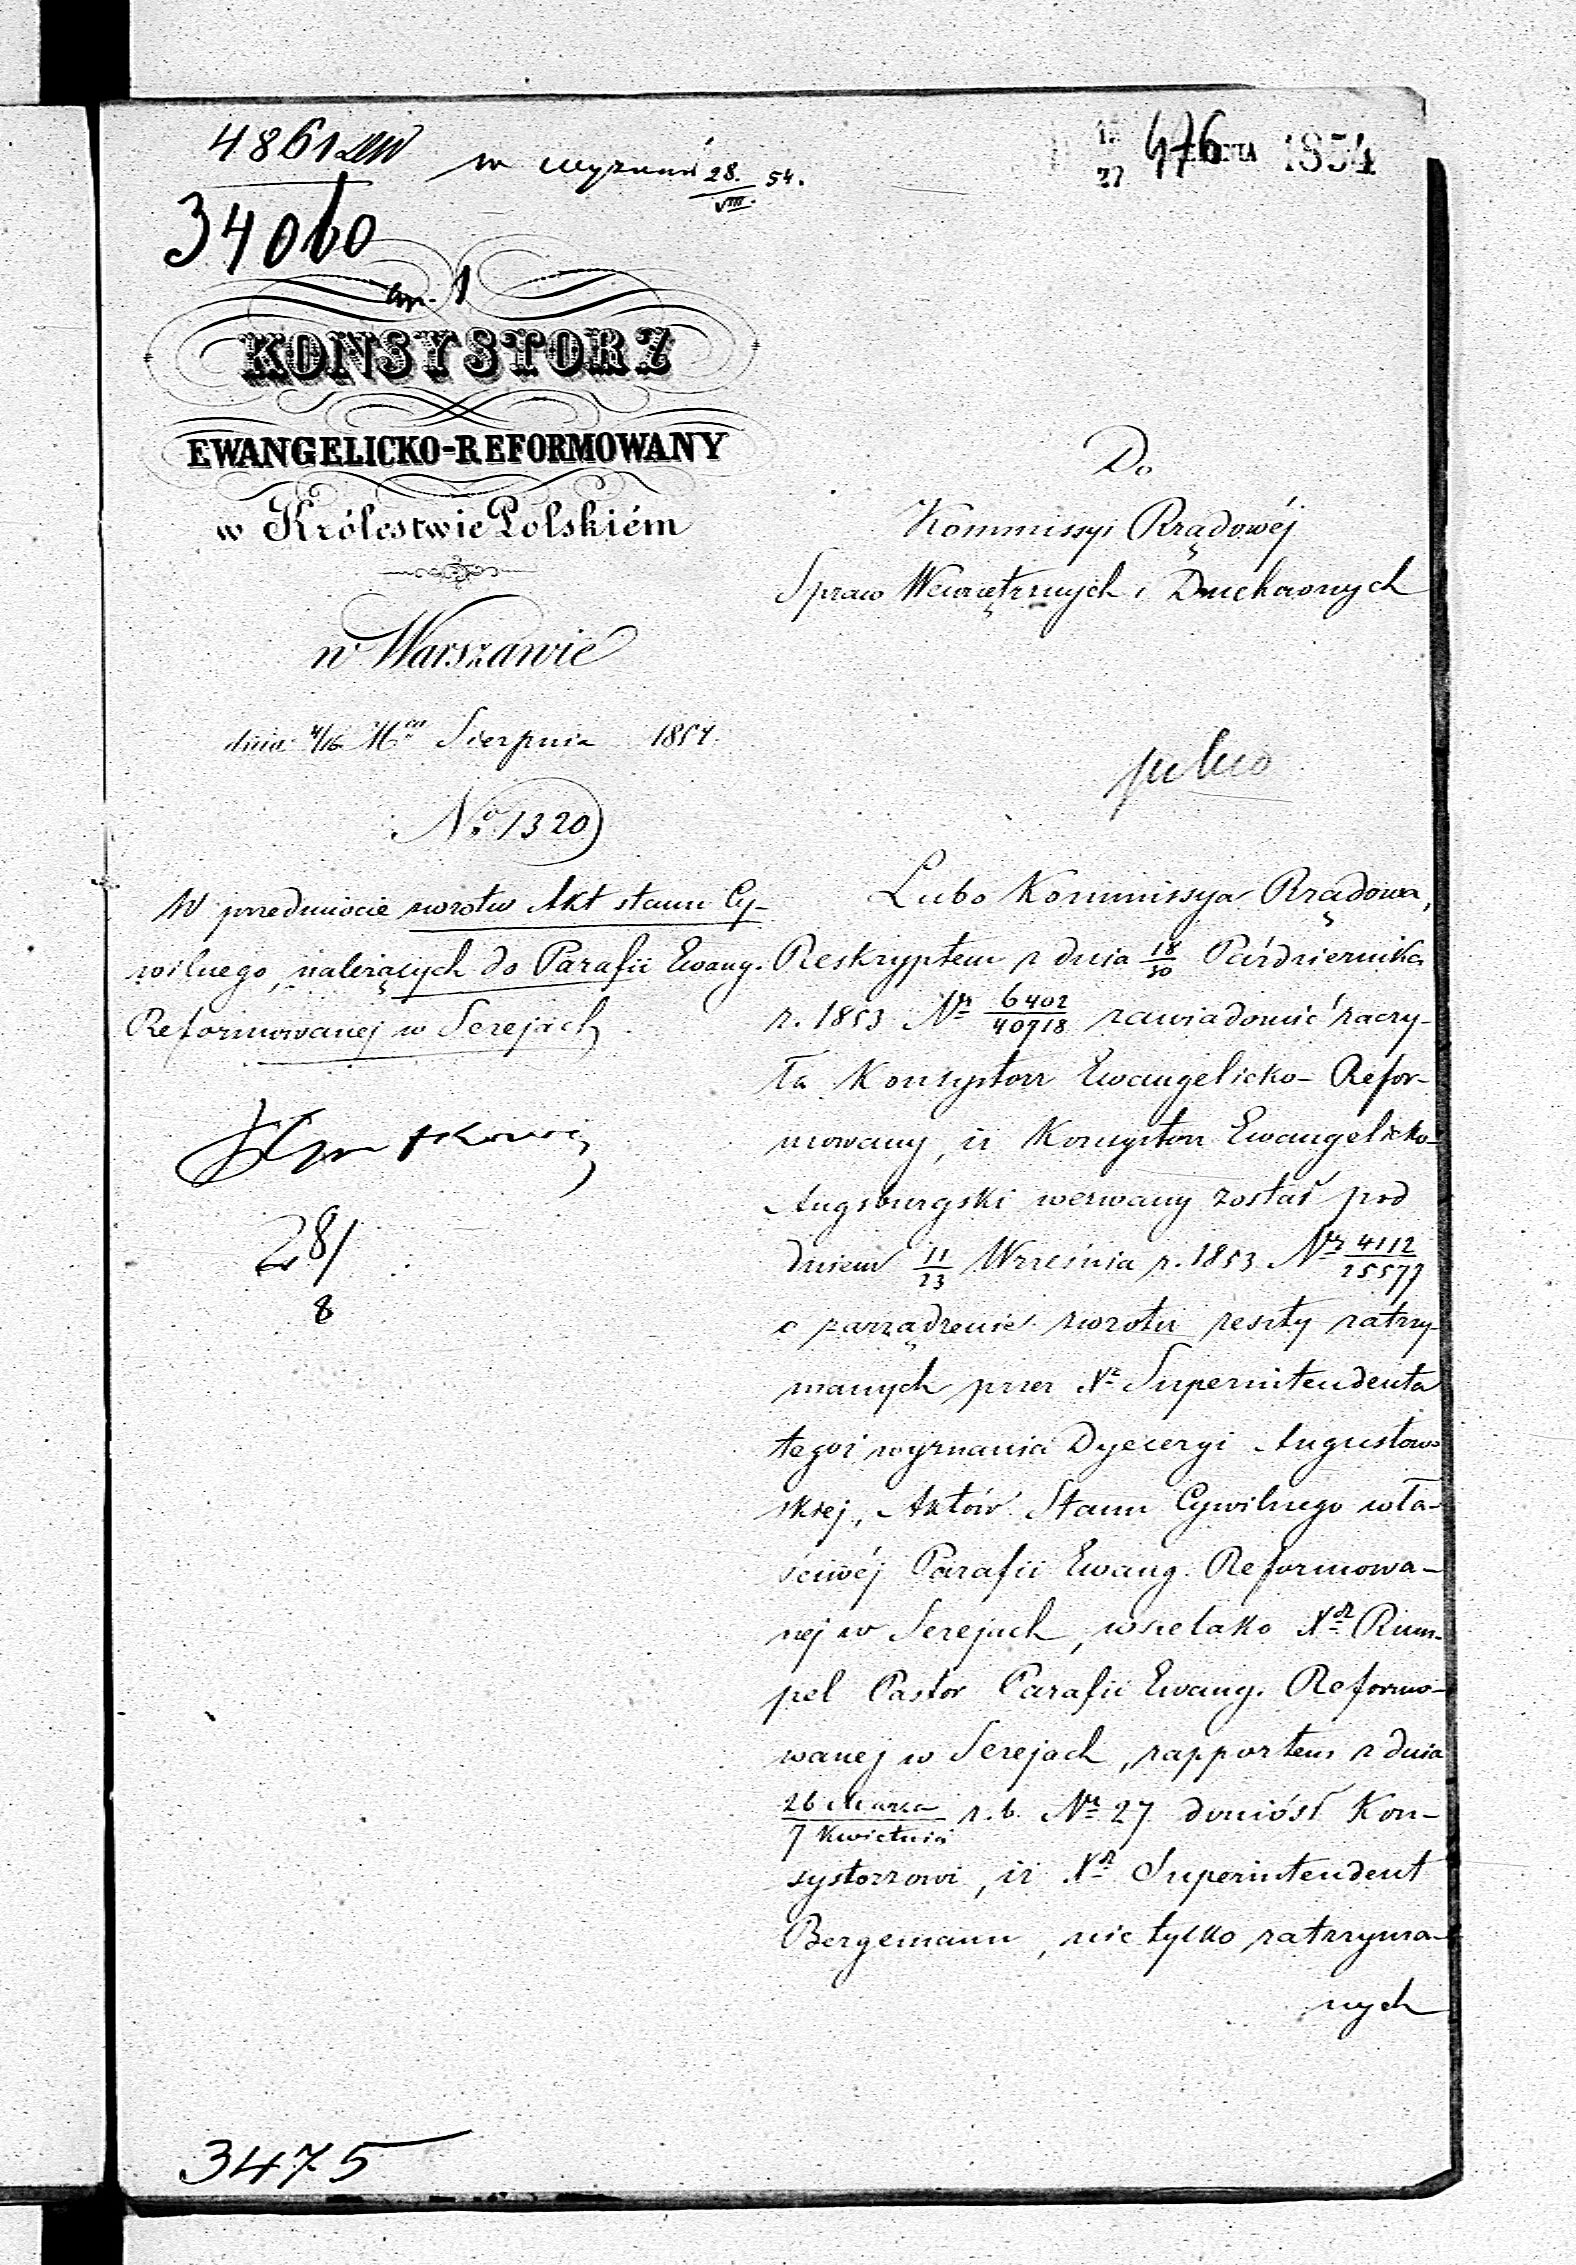 4861
w wyznań 28/VIII. 54.
15/27 476 1854
34060
KONSYSTORZ
EWANGELICKO-REFORMOWANY
w Królestwie Polskiém
w Warszawie
dnia 4/16 Mca Sierpnia 1854.
No 1320
W przedmiocie zwrotu Akt stanu Cy-
wilnego, należących do Parafii Ewang.
Reformowanej w Serejach
28/8
Do
Kommissyi Rządowéj
Spraw Wewnętrznych i Duchownych
pilno
Lubo Kommissya Rządowa,
Reskryptem z dnia 18/30 Października
r. 1853 Nr 6402/40718 zawiadomić raczy-
ła Konsystorz Ewangelicko-Refor-
mowany, iż Konsystorz Ewangelicko-
Augsburgski wezwany został pod
dniem 11/23 Września r. 1853 Nr 4112/25577
o zarządzenie zwrotu reszty zatrzy-
manych przez Xa Superintendenta
tegoż wyznania Dyecezyi Augustow-
skiej, Aktów Stanu Cywilnego wła-
ściwéj Parafii Ewang. Reformowa-
nej w Serejach, wszelako Xdz Rum-
pel Pastor Parafii Ewang. Reformo-
wanej w Serejach, rapportem z dnia
26 Marca/7 Kwietnia r. b. Nr 27 doniósł Kon-
systorzowi, iż Xdz Superintendent
Bergemann, nie tylko zatrzyma-
nych
3475